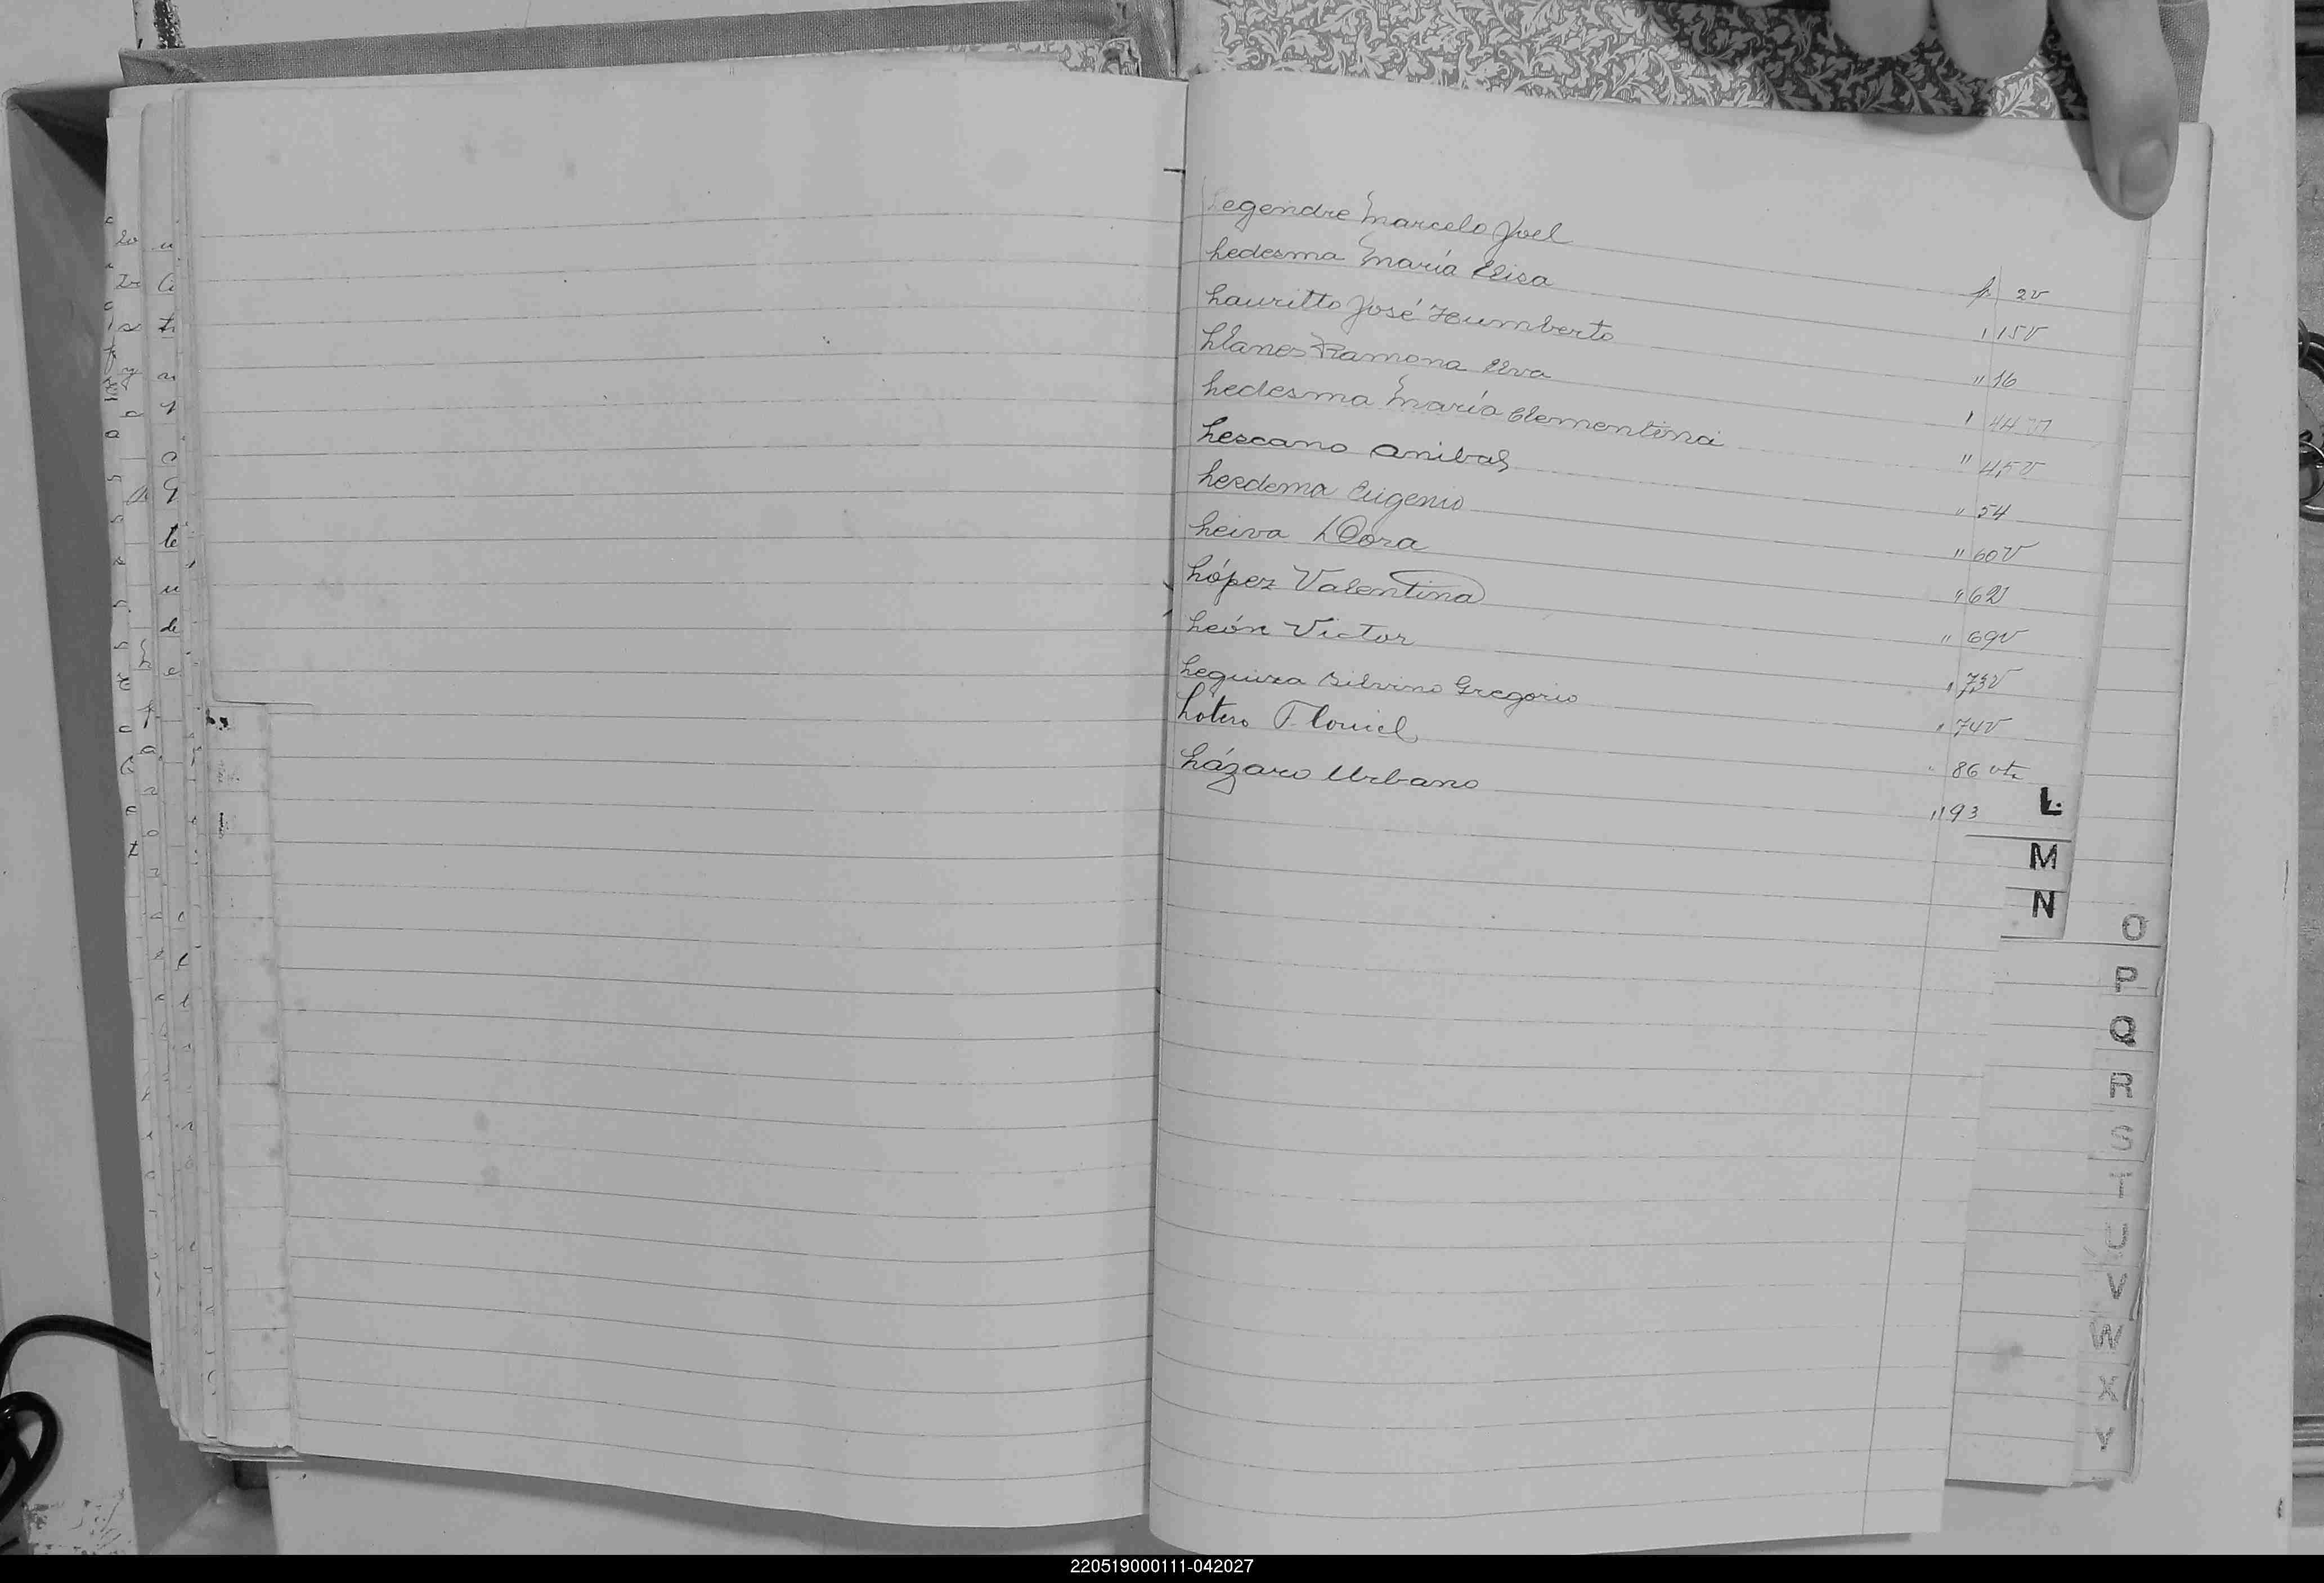 Legendre Marcelo Joel f 2v
Ledesma María Elisa " 15v
Lauritto José Humberto " 16
Llanes Ramona Elva " 44
Ledesma María Clementina " 45v
Lescano Anibal " 54
Lesdema Eugenio " 60v
Leiva Dora " 62v
López Valentina " 69v
León Victor " 73v
Leguiza Silvino Gregorio " 74v
Lotero " 86 vta
Lázaro Urbano " 93
L
M
N
O
P
Q
R
S
T
U
V
W
X
Y
220519000111-042027